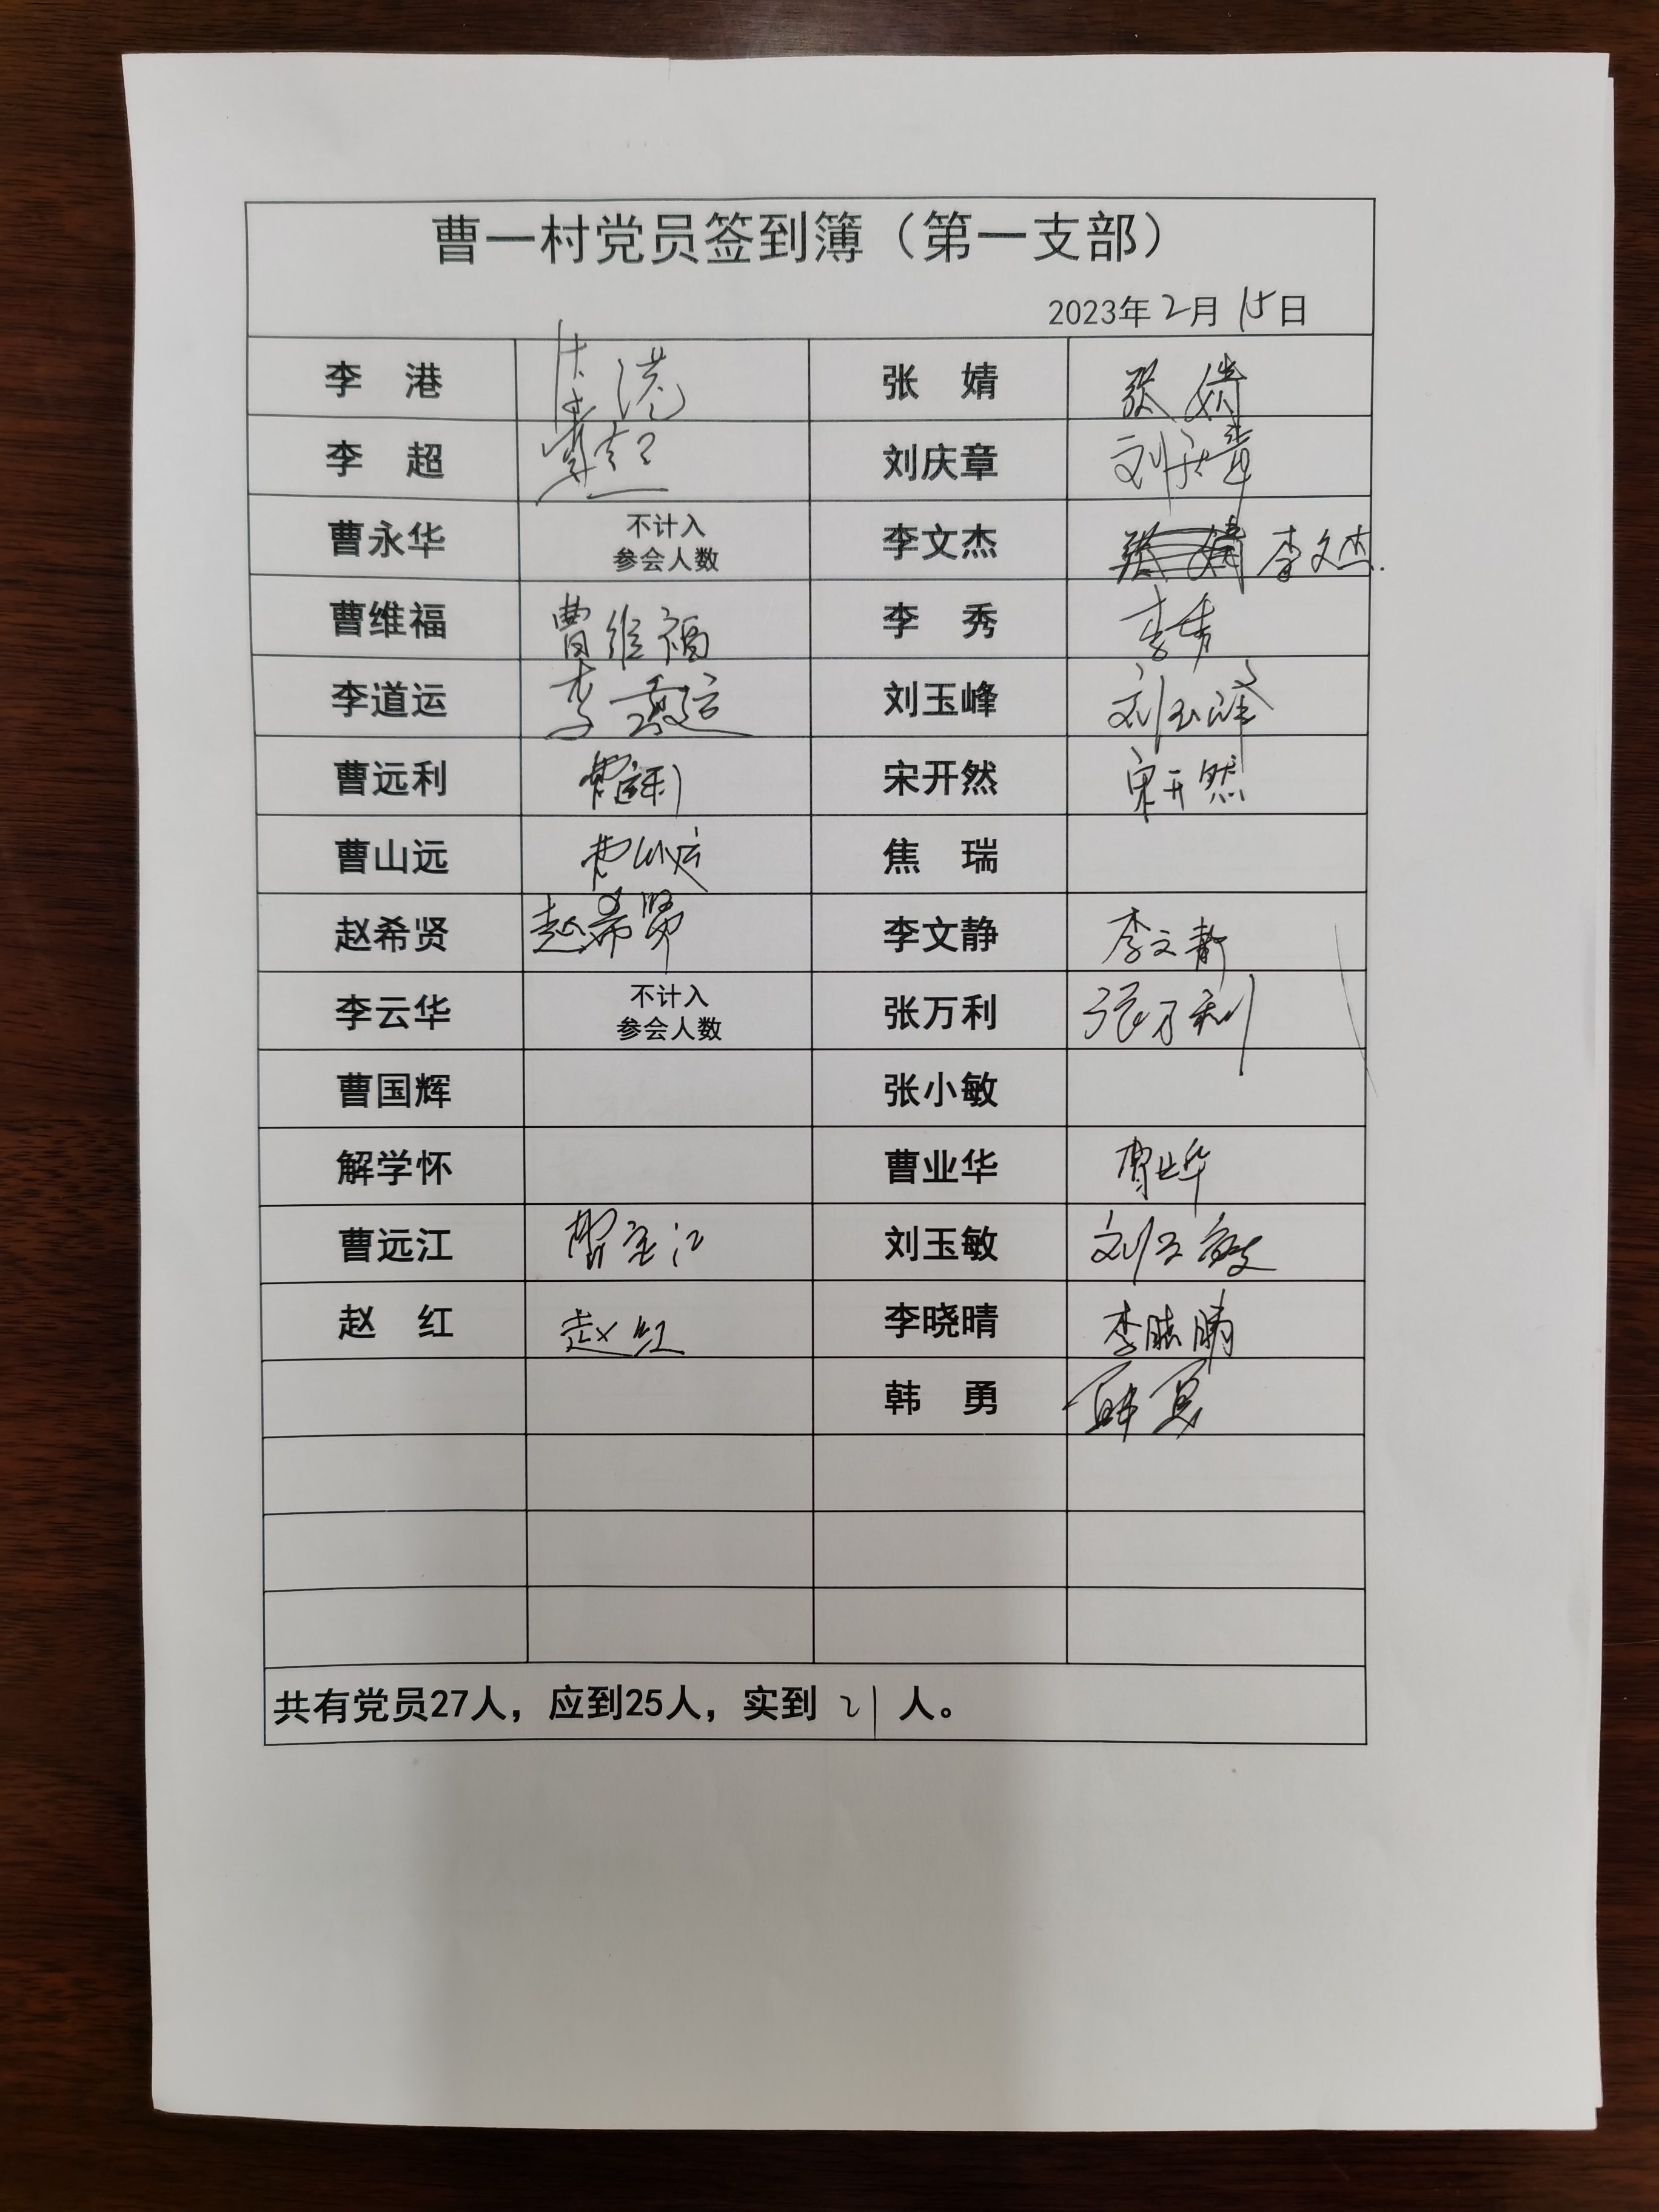 曹一村党员签到簿（第一支部）
2023年2月15日
李 港 李港 张 婧 张婧
李 超 李超 刘庆章 刘庆章
曹永华 不计入 参会人数 李文杰 张婧 李文杰.
曹维福 曹维福 李 秀 李秀
李道运 李道运 刘玉峰 刘玉峰
曹远利 曹远利 宋开然 宋开然
曹山远 曹山远 焦 瑞
赵希贤 赵希贤 李文静 李文静
李云华 不计入 参会人数 张万利 张万利
曹国辉 张小敏
解学怀 曹业华 曹业华
曹远江 曹远江 刘玉敏 刘玉敏
赵 红 赵红 李晓晴 李晓晴
韩 勇 韩勇
共有党员27人，应到25人，实到 21 人。